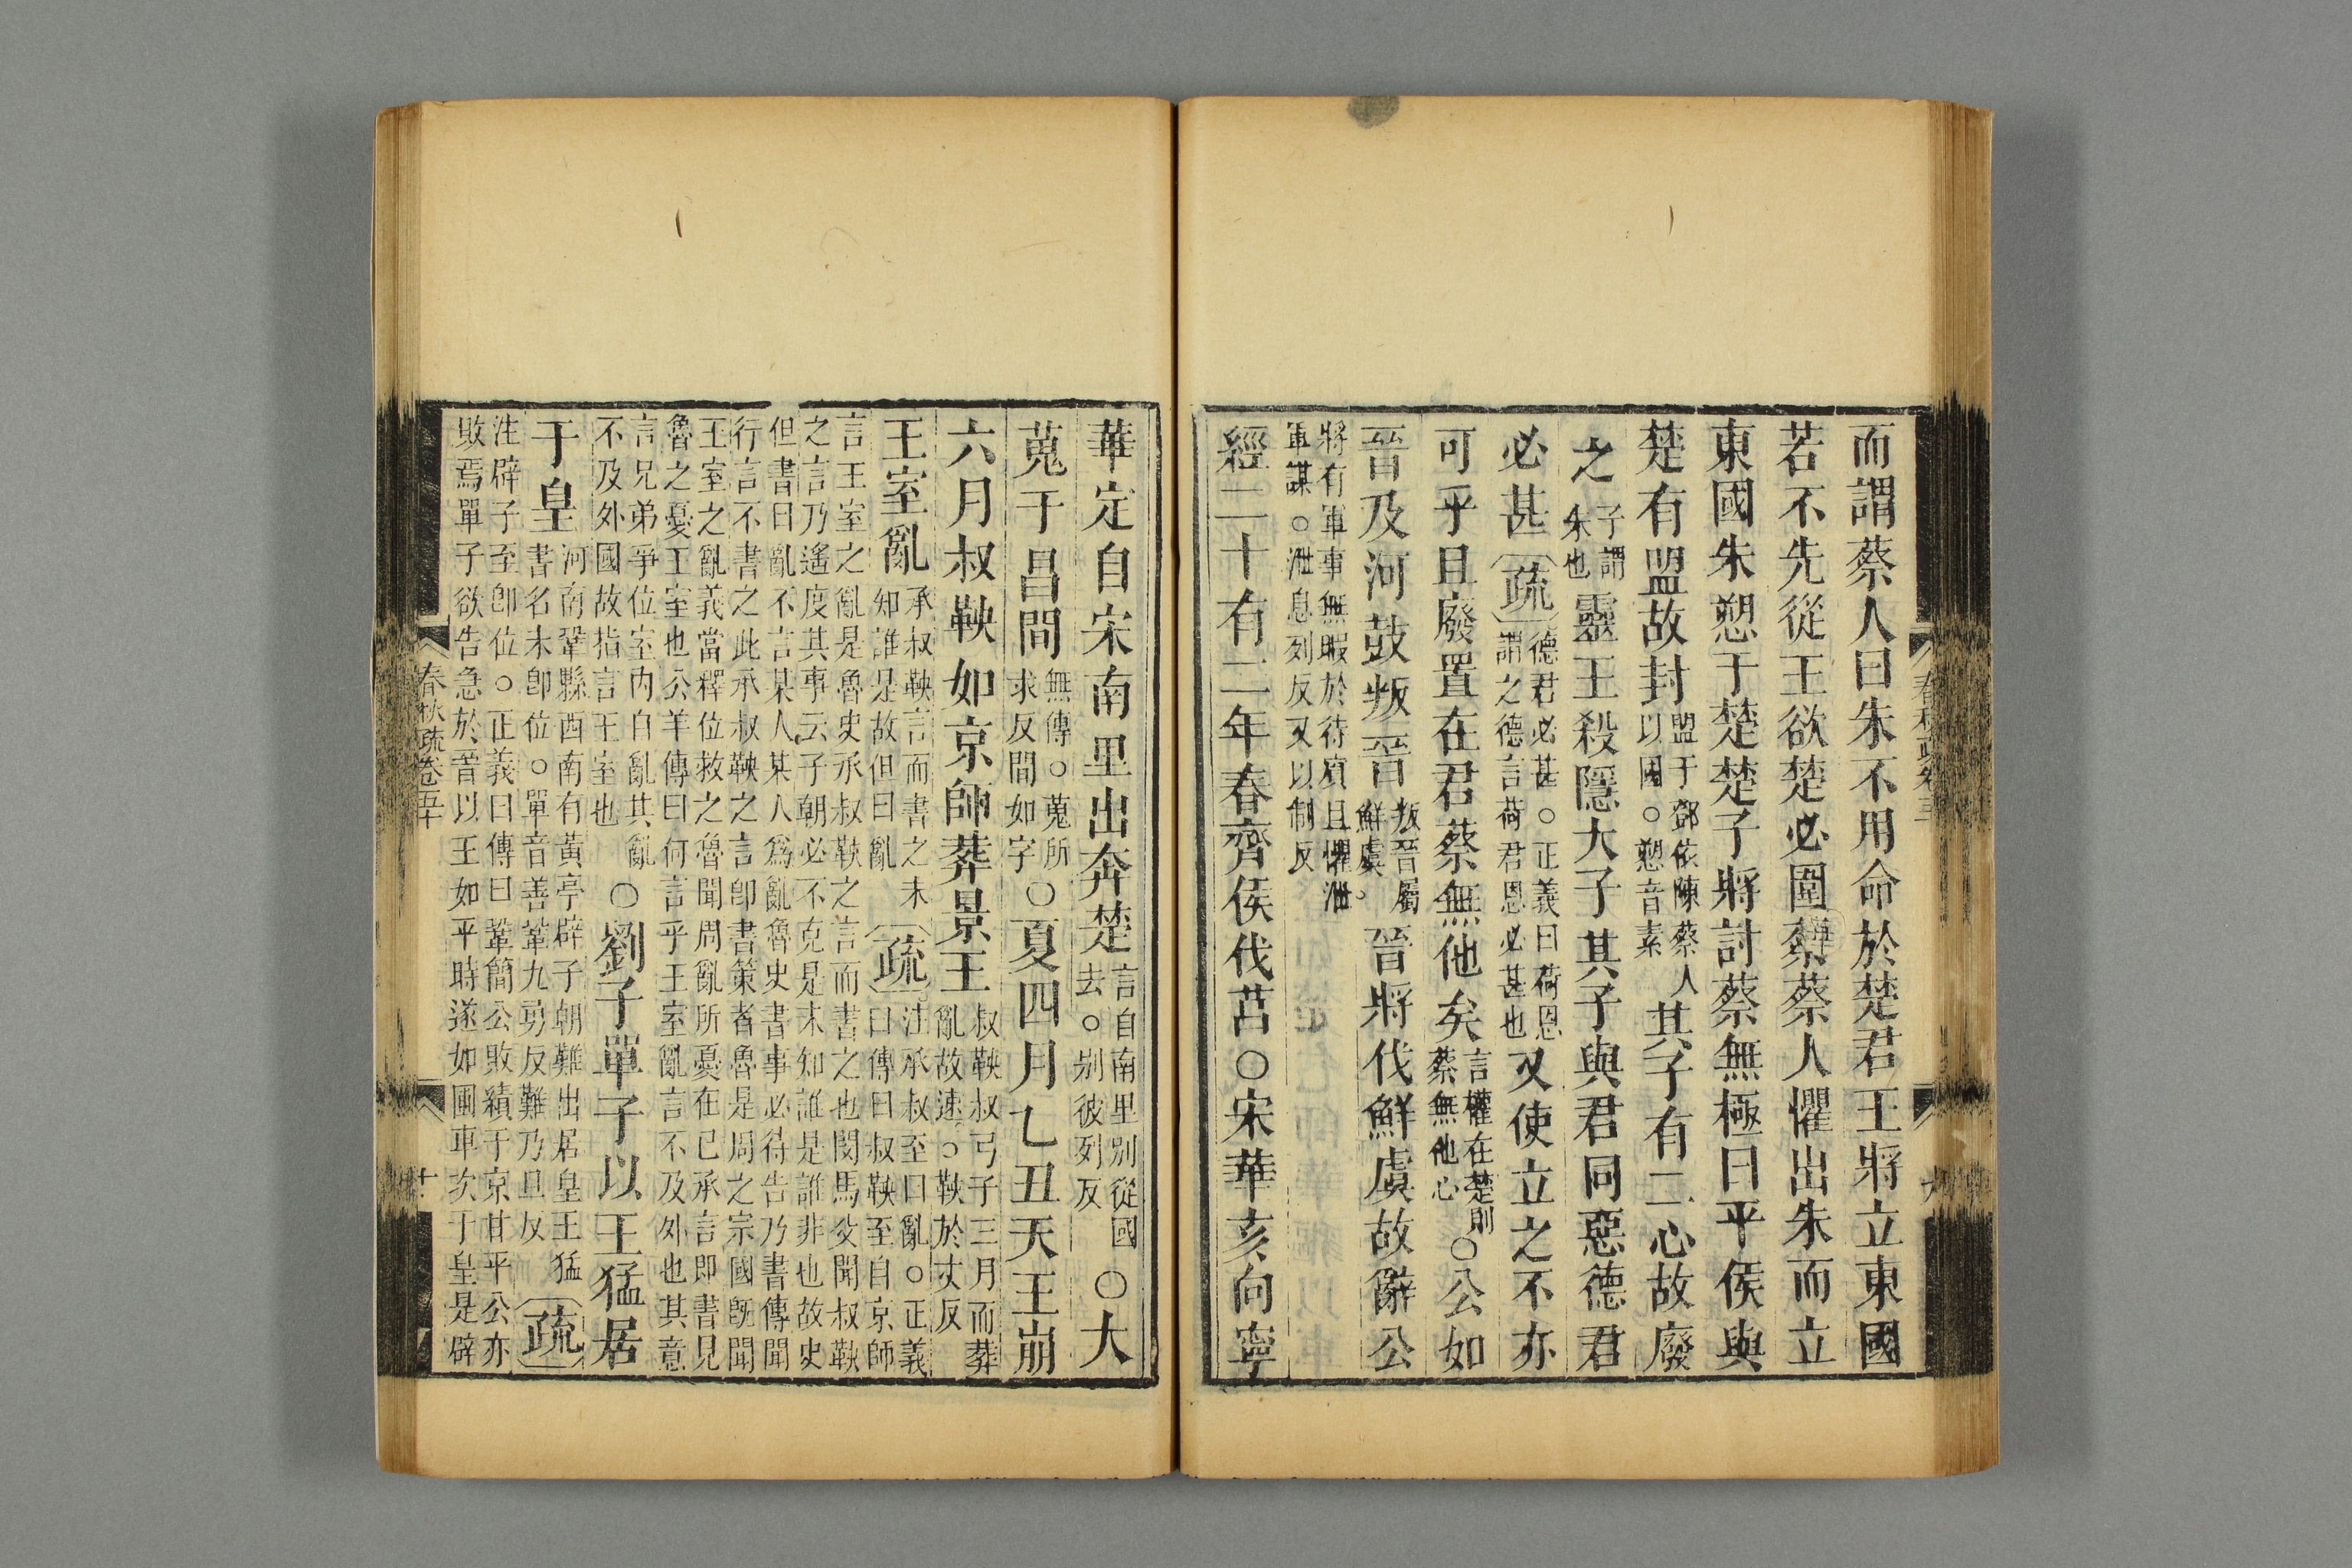 而謂蔡人曰朱不用命於楚君王將立東國
若不先從王欲楚必圍蔡蔡人懼出朱而立
東國朱愬于楚楚子將討蔡無極曰平侯與
楚有盟故封盟于鄧依陳蔡人以國○愬音素其子有二心故廢
之子謂朱也靈王殺隱大子其子與君同惡德君
必甚疏德君必甚○正義曰荷恩謂之德言荷君恩必甚也又使立之不亦
可乎且廢置在君蔡無他矣言權在楚則蔡無他心○公如
晉及河鼓叛晉叛晉屬鮮虞○晉將伐鮮虞故辭公
將有軍事無暇於待賓且懼泄軍謀○泄息列反又以制反
經二十有二年春齊侯伐莒○宋華亥向寧
華定自宋南里出奔楚言自南里別從國去○別彼列反○大
蒐于昌間無傳○蒐所求反間如字○夏四月乙丑天王崩
六月叔鞅如京師葬景王叔鞅叔弓子三月而葬亂故速○鞅於丈反
王室亂承叔鞅言而書之未知誰是故但曰亂疏注承叔至曰亂○正義曰傳曰叔鞅至自京師
言王室之亂是魯史承叔鞅之言而書之也閔馬父聞叔鞅
之言乃遙度其事云子朝必不克是未知誰是誰非也故史
但書曰亂不言某人某人爲亂魯史書事必待告乃書傳聞
行言不書之此承叔鞅之言卽書策者魯是周之宗國旣聞
王室之亂義當釋位救之魯聞周亂所憂在已承言即書見
魯之憂王室也公羊傳曰何言乎王室亂言不及外也其意
言兄弟爭位室內自亂其亂不及外國故指言王室也○劉子單子以王猛居
于皇河南鞏縣西南有黃亭辟子朝難出居皇王猛書名未卽位○單音善鞏九勇反難乃旦反疏
注辟子至卽位○正義曰傳曰鞏簡公敗績于京甘平公亦
敗焉單子欲告急於晉以王如平時遂如圃車次于皇是辟
春秋疏卷五十